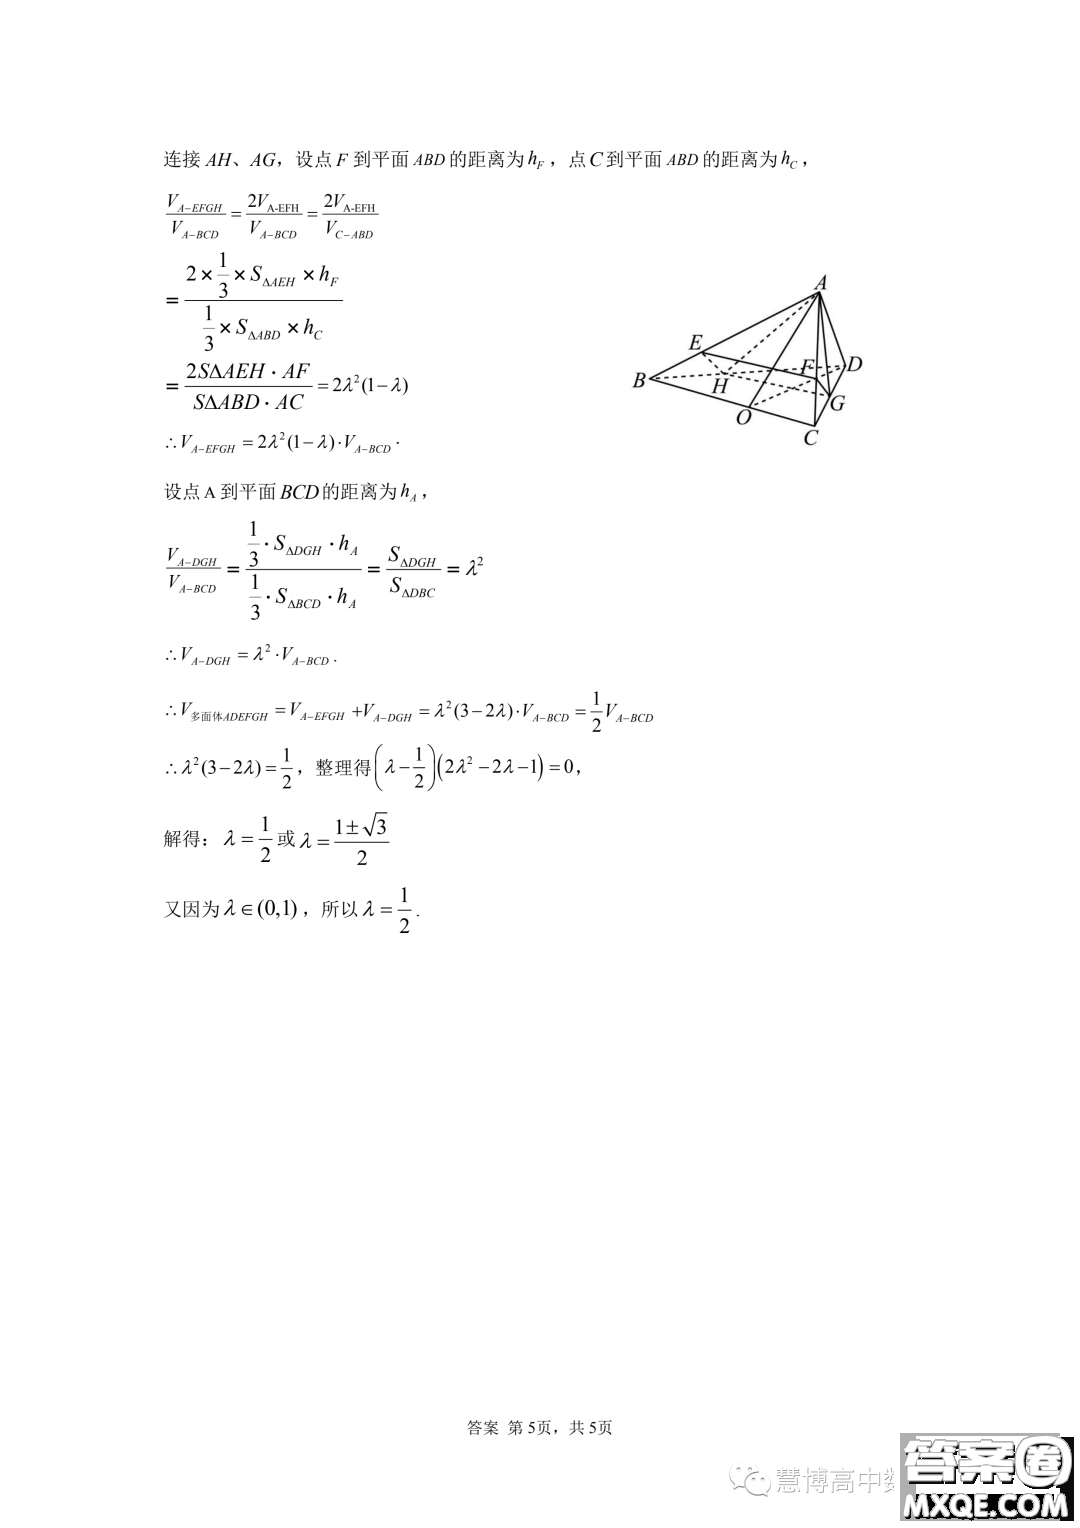 连接 AH、AG，设点 F 到平面 ABD 的距离为 h_F，点 C 到平面 ABD 的距离为 h_C，
V_{A−EFGH}/V_{A−BCD} = 2V_{A-EFH}/V_{A−BCD} = 2V_{A-EFH}/V_{C−ABD}
= (2×1/3×S_{ΔAEH}×h_F)/(1/3×S_{ΔABD}×h_C)
= (2SΔAEH·AF)/(SΔABD·AC) = 2λ²(1−λ)
∴V_{A−EFGH} = 2λ²(1−λ)·V_{A−BCD}.
设点 A 到平面 BCD 的距离为 h_A，
V_{A−DGH}/V_{A−BCD} = (1/3·S_{ΔDGH}·h_A)/(1/3·S_{ΔBCD}·h_A) = S_{ΔDGH}/S_{ΔDBC} = λ²
∴V_{A−DGH} = λ²·V_{A−BCD}.
∴V_{多面体ADEFGH} = V_{A−EFGH} +V_{A−DGH} = λ²(3−2λ)·V_{A−BCD} = 1/2 V_{A−BCD}
∴λ²(3−2λ) = 1/2，整理得(λ−1/2)(2λ²−2λ−1) = 0，
解得：λ = 1/2 或 λ = (1±√3)/2
又因为 λ∈(0,1)，所以 λ = 1/2.
A
E
B
H
F
D
G
O
C
答案 第 5页，共 5页
慧博高中数
答案圈
MXQE.COM